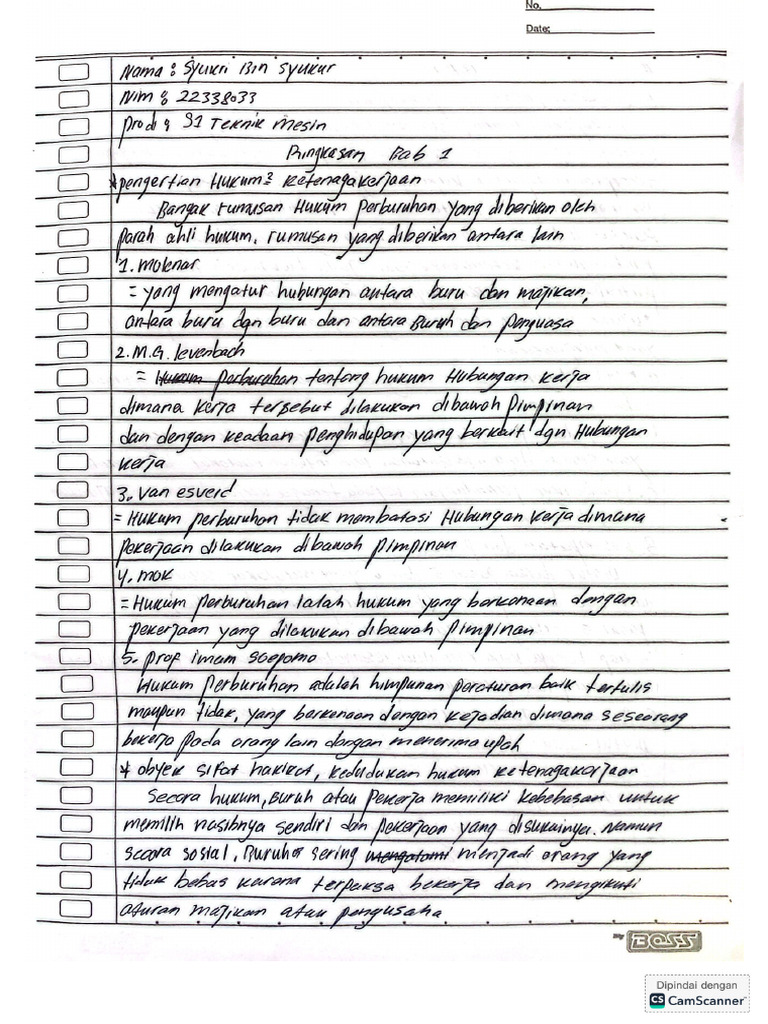 No.
Date:
Nama : Syukri Bin Syukur
Nim : 22338033
Prodi : S1 Teknik Mesin
Ringkasan Bab 1
* pengertian Hukum : Ketenagakerjaan
Bangak rumusan Hukum perburuhan yang diberikan oleh
parah ahli hukum, rumusan yang diberikan antara lain
1. Molenar
= yang mengatur hubungan antara buru dan majikan,
antara buru dgn buru dan antara Buruh dan Penguasa
2. M.G. levenbach
= Hukum perburuhan tentang hukum Hubungan kerja
dimana kerja tersebut dilakukan dibawah Pimpinan
dan dengan keadaan penghidupan yang berkait dgn Hubungan
kerja
3. Van esveld
= Hukum perburuhan tidak membatasi Hubungan kerja dimana
Pekerjaan dilakukan dibawah pimpinan
4. mok
= Hukum perburuhan ialah hukum yang berkenaan dengan
pekerjaan yang dilakukan dibawah pimpinan
5. prof imam Soepomo
Hukum perburuhan adalah himpunan peraturan baik tertulis
maupun tidak, yang berkenaan dengan kejadian dimana seseorang
bekerja pada orang lain dengan menerima upah
* obyek sifat hakikat, kedudukan hukum ketenagakerjaan
Secara hukum, Buruh atau Pekerja memiliki kebebasan untuk
memilih nasibnya sendiri dan pekerjaan yang disukainya. Namun
secara sosial, Buruh sering mengalami menjadi orang yang
tidak bebas karena terpaksa bekerja dan mengikuti
aturan majikan atau pengusaha
By BOSS
Dipindai dengan
CS CamScanner